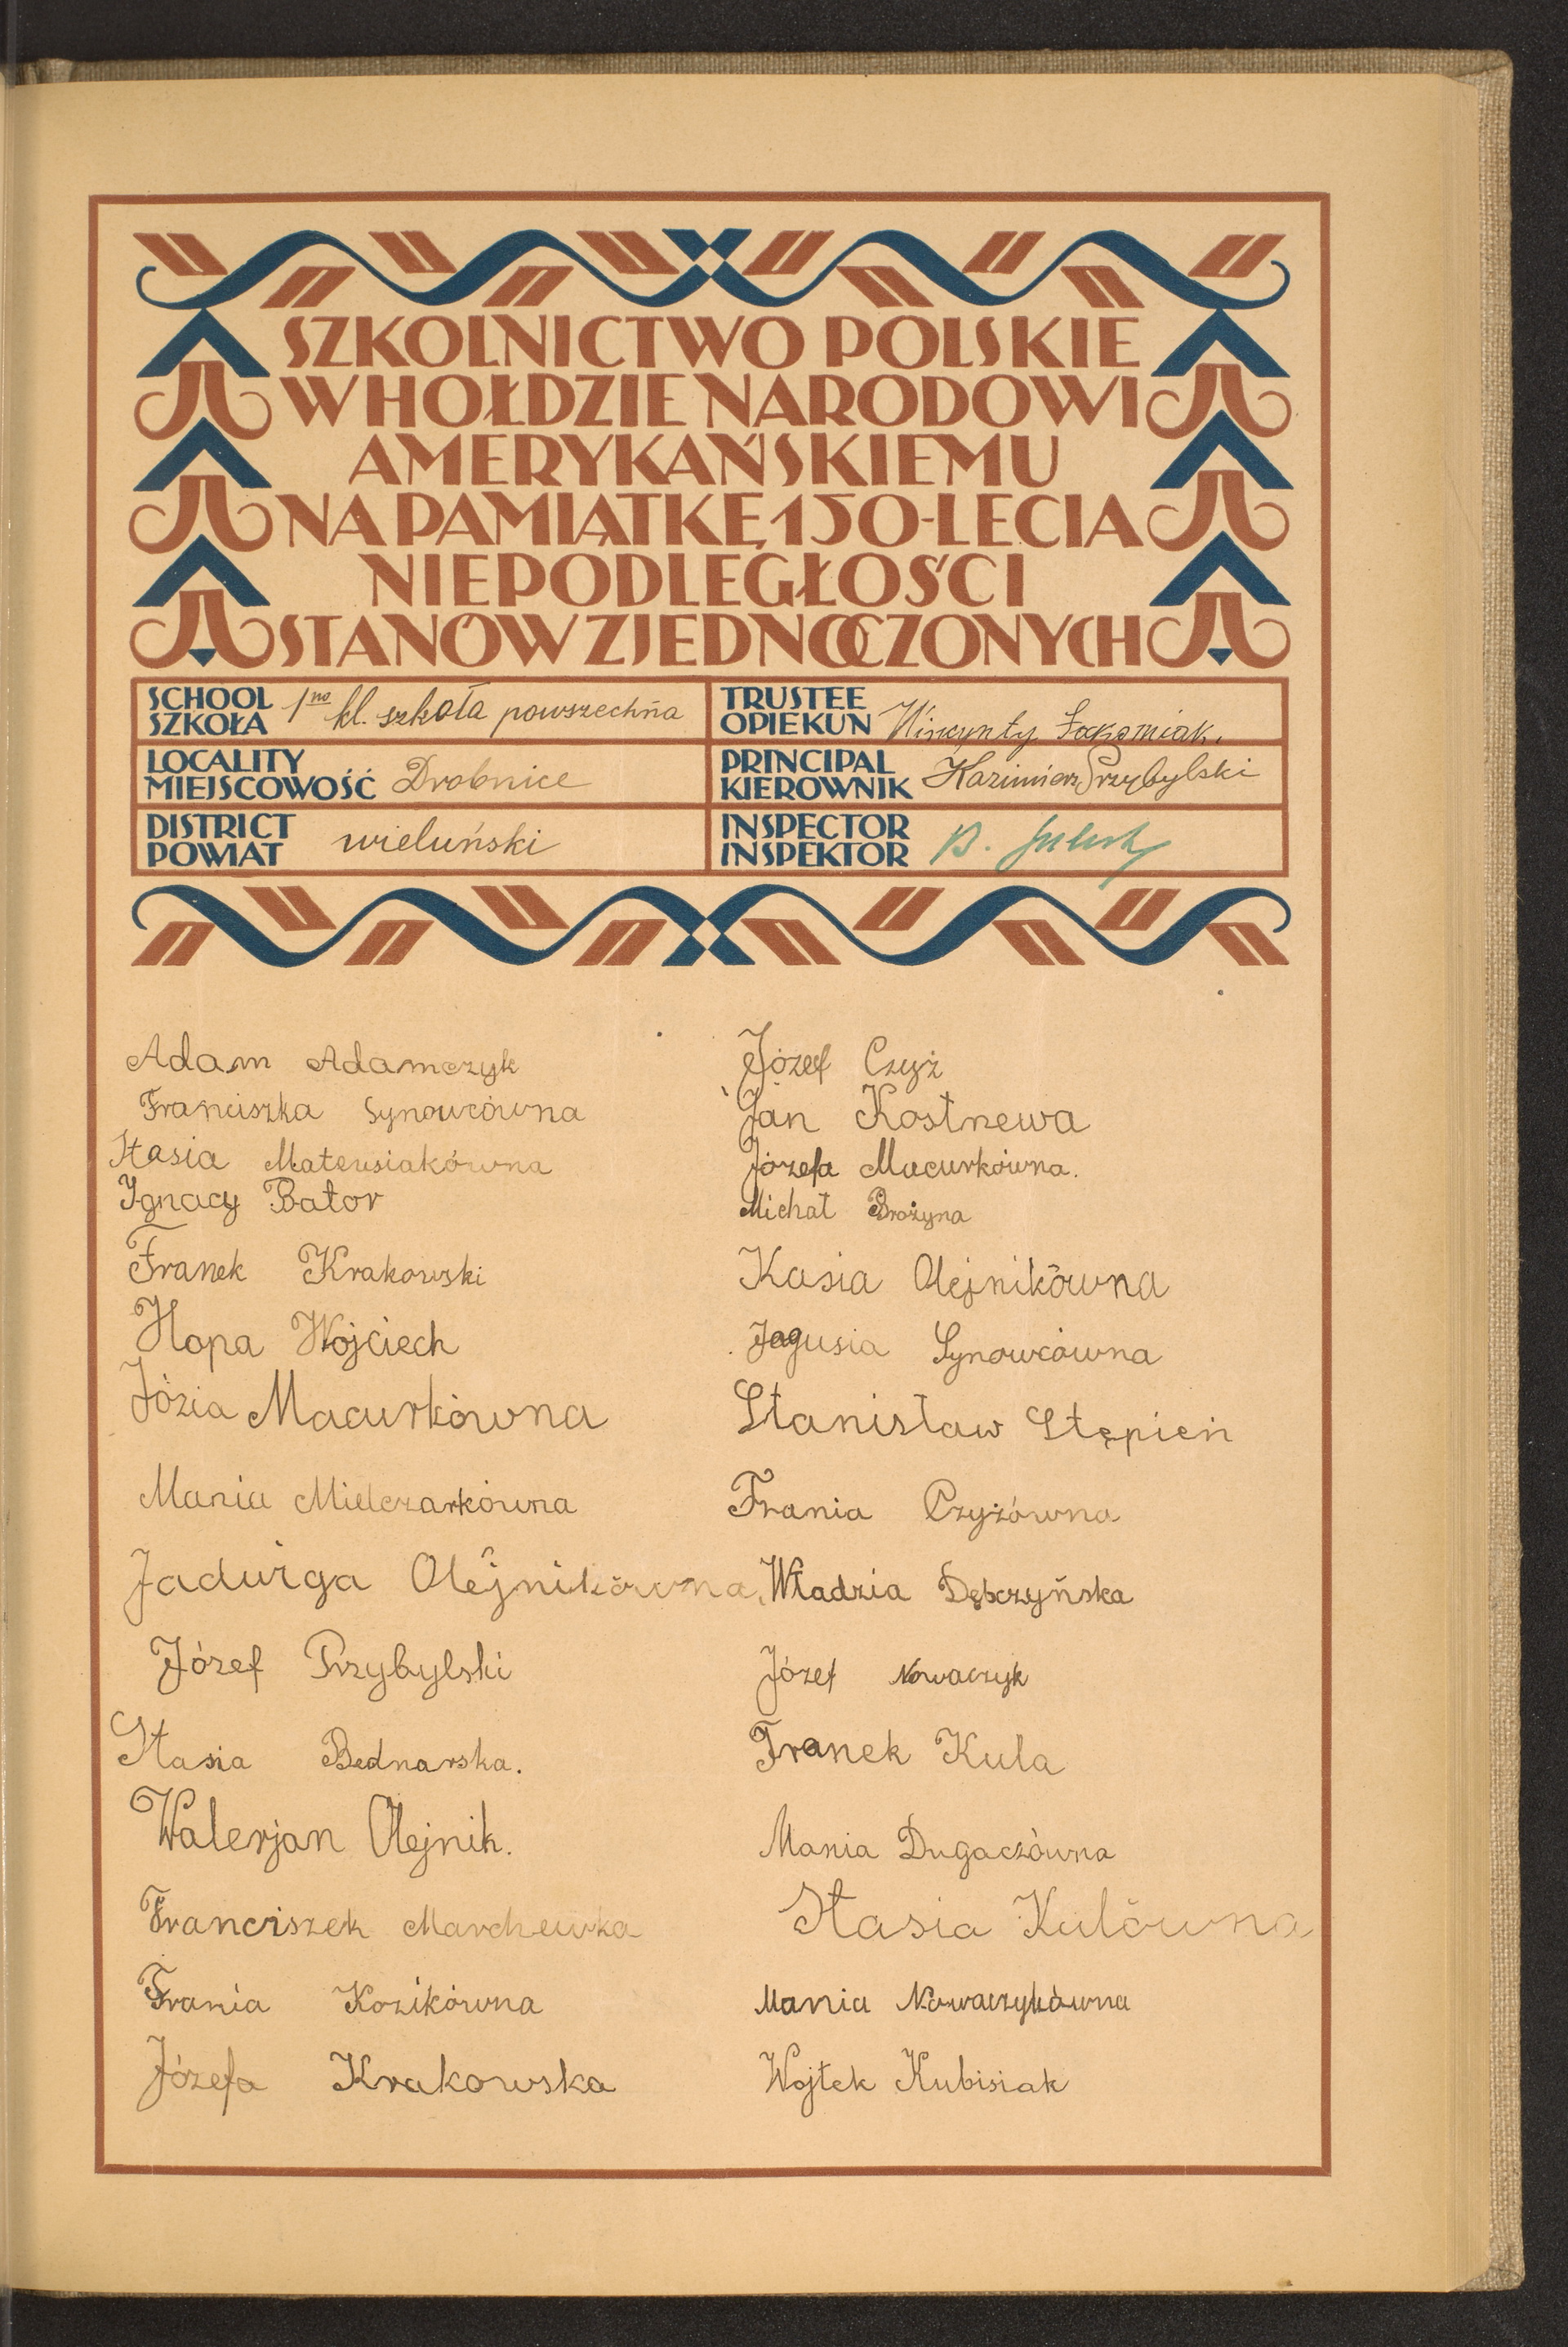 SZKOLNICTWO POLSKIE
W HOŁDZIE NARODOWI
AMERYKAŃSKIEMU
NA PAMIĄTKĘ 150-LECIA
NIEPODLEGŁOŚCI
STANÓW ZJEDNOCZONYCH
SCHOOL
SZKOŁA 1no kl. szkoła powszechna
TRUSTEE
OPIEKUN Wincynty
LOCALITY
MIEJSCOWOŚĆ Drobnice
PRINCIPAL
KIEROWNIK Kazimierz Przybylski
DISTRICT
POWIAT wieluński
INSPECTOR
INSPEKTOR B.
Adam Adamczyk
Franciszka Synowcówna
Stasia Mateusiakówna
Ignacy Bator
Franek Krakowski
Hopa Wojciech
Józia Macurkówna
Mania Mielczarkówna
Jadwiga Olejnikówna
Józef Przybylski
Stasia Bednarska.
Walerjan Olejnik.
Franciszek Marchewka
Frania Kozikówna
Józefa Krakowska
Józef Czyż
Jan Kostnewa
Józefa Macurkówna.
Michał Brożyna
Kasia Olejnikówna
Jagusia Synowcówna
Stanisław Stępień
Frania Czyżówna
Władzia Dębczyńska
Józef Nowaczyk
Franek Kula
Mania Dugaczówna
Stasia Kulówna
Mania Nowaczykówna
Wojtek Kubisiak